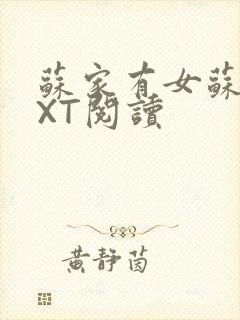 蘇家有女蘇
XT閱讀
黃靜茵